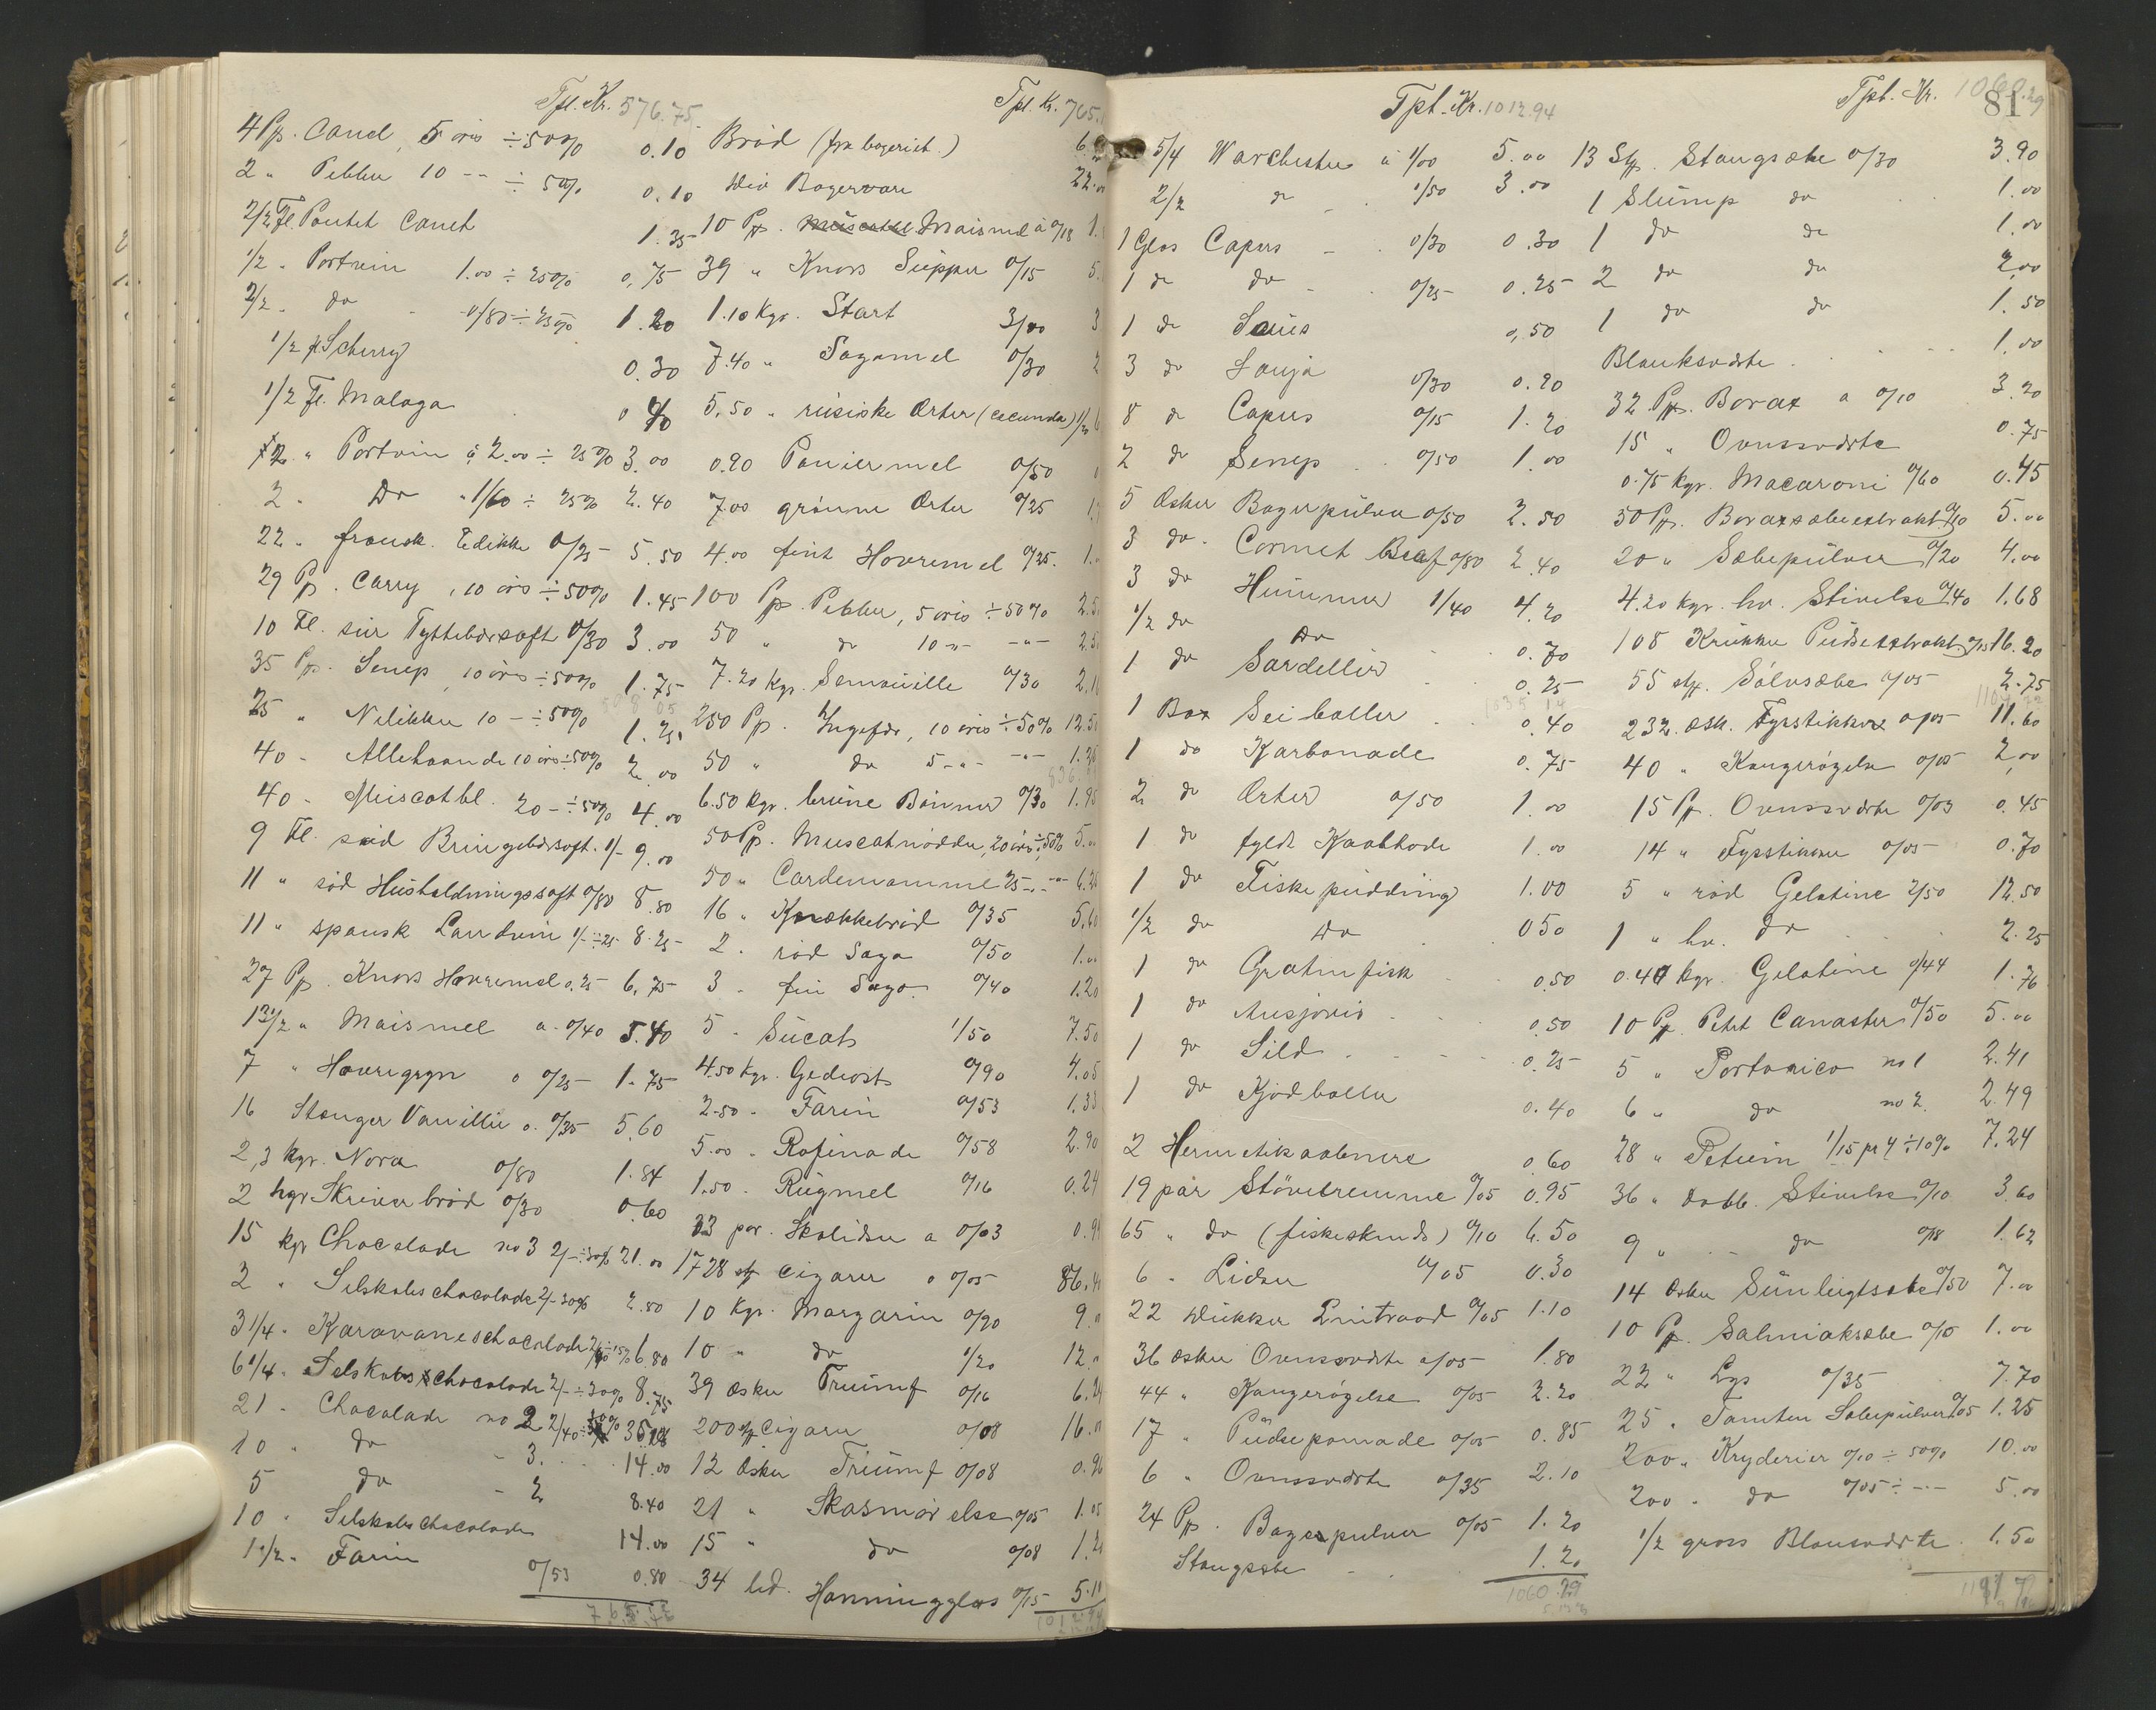 Tpt. Kr. 576.75
4 Pp. Canel, 5 öris ÷ 50% 0.10
2 " Pebber 10 -- ÷ 50% 0.10
2/2 Fl. Pontet Canet 1.35
1/2 " Portvin 1.00 ÷ 25% 0,75
2/2 " do 0/80 ÷ 25% 1.20
1/2 fl Scherry 0.30
1/2 Fl. Malaga 0 40
2 " Portvin à 2.00 ÷ 25% 3.00
2 " Do " 1/60 ÷ 25% 2.40
22 " fransk. Eddikke 0/25 5.50
29 Pp. Carry, 10 öris ÷ 50% 1.45
10 Fl. sür Tyttebærsaft 0/30 3.00
35 Pp. Senep, 10 öris ÷ 50% 1.75
25 " Nellikker 10 - ÷ 50% 1.25
40 - Allehaande 10 öris ÷ 50% 2.00
40 - Müscatbl. 20 - ÷ 50% 4.00
9 Fl. sød Bringebærsaft. 1/- 9.00
11 " söd Husholdningssaft 0/80 8.80
11 " spansk Landvin 1/- ÷ 25 8.25
27 Pp. Knors Havremel 0.25 6,75
13 1/2 " Maismel a 0/40 5.40
7 " Havregryn o 0/25 1.75
16 Stænger Vanillie a. 0/35 5.60
2,3 kgr. Nora 0/80 1.84
2 kgr Skriver bröd 0/30 0.60
15 kgr Chocolade no 3 2/- ÷ 30% 21.00
2 " Selskabschocolade 2/- 30% 2.80
3 1/4 " Karavanechocolade 15% 6.80
6 1/4 " Selskabschocolade 2/- ÷ 30% 8.75
21 - Chocolade no 2 2/40
10 " do - 3. 14.00
5 do - 2 8.40
10 " Selskabschocolade 14.00
1 1/2 " Farin 0/53 0.80

Tpt. Kr. 765.
Bröd (fra bageriet.) 6.
Div Bagervare 22.00
10 Pp. Maismel à 0/18 1.
39 " Knors Süpper 0/15 5.
1.10 Kgr. Start 3/00 3
7.40 " Sagomel 0/30 2
5,50 " rüsiske Ærter
0.90 Paniermel 0/50
7.00 grönne Ærter 0/25
4.00 fint Havremel 0/25. 1.
100 Pp. Pebber, 5 öris ÷ 50% 2.5
50 " do 10 -"- -"- 2.5
7.20 Kgr. Semouille 0/30 2.1
250 Pp. Ingefær, 10 öris ÷ 50% 12.5
50 " do 5 -"- -"- 1.25
6.50 Kgr. brüne Bönner 0/30 1.95
50 Pp. Muscatnödder, 20 öris ÷ 50% 5.00
50 " Cardemomme 25 -"- -"- 6.25
16 " Knækkebröd 0/35 5,60
2 . röd Sago 0/50 1.00
3 - fin Sago. 0/40 1.20
5 - Sücat 1/50 7.50
4.50 Kgr. Gedeost 0/90 4.05
2.50 - Farin 0/53 1.33
5.00 - Rafinade 0/58 2.90
1.50 - Rügmel 0/16 0.24
33 par. Skolidser a 0/03 0.9
1728 stk Cigarer o 0/05 86.4
10 Kgr. Margarin 0/90 9.
10 " do 1/20 12.
39 Æsker Triumf 0/16 6.24
200 stk Cigarer 0/08 16.
12 Æsker Triümf 0/08 0.96
21 " Skosmörelse 0/05 1.05
15 " do 0/08 1.2
34 led. Honningglas 0/15 5.1

Tpt. Kr. 1012.94
5/4 Warchester à 1/00 5.00
2/2 do 1/50 3.00
1 Glas Capers - 0/30 0.30
1 do do - 0/25 0.25
1 do Saus 0,50
3 do Souja 0/30 0.90
8 do Capers 0/15 1.20
2 do Senep 0/50 1.00
5 Æsker Bagerpülver 0/50 2.50
3 do. Cornet Beaf 0/80 2.40
3 do Hummer 1/40 4.20
1/2 do Do 0.70
1 do Sardeller 0.25
1 Box Sei boller 0.40
1 do Karbonade 0.75
2 do Ærter 0/50 1.00
1 do fyldt Kaalhode 1.00
1 do Fiskepüdding 1.00
1/2 do Do 0 50
1 do Gratinfisk 0.50
1 do Ansjovis 0.50
1 do Sild 0.25
1 do Kjödboller 0.40
2 Hermetikaabnere 0.60
19 par Stövleremme 0/05 0.95
65 " do (fiskeskinds) 0/10 6.50
6 - Lidser 0/05 0.30
22 Dukker Lintraad 0/05 1.10
36 æsker Ovnssværte 0/05 1.80
44 " Kongerögelse 0/05 2.20
17 " Püdsepomade 0/05 0.85
6 " Ovnssværte 0/35 2.10
24 Pp. Bagerpulver 0/05 1.20
Stangsæbe 1.20
1060.29

Tpt. Kr. 1060.29
81
13 Stk. Stangsæbe 0/30 3.90
1 Slump do 1.00
1 do do 1.00
2 do do 2,00
1 do do 1.50
Blanksværte 1.00
32 Pp. Borax a 0/10 3.20
15 " Ovnssværte 0.75
0.75 kgr. Macaroni 0/60 0.45
50 Pp. Boraxsæbeextrakt 0/10 5.00
20 " Sæbepülver 0/20 4.00
4.20 kgr. hv. Stivelse 0/40 1.68
108 Krükker Püdseextrakt 0/15 16.20
55 stk. Sölvsæbe 0/05 2.75
232 æsk. Fyrstikker 0/05 11.60
40 " Kongerögelse 0/05 2,00
15 Pp. Ovnssværte 0/03 0.45
14 " Fyrstikker 0/05 0.70
5 " röd Gelatine 2/50 12.50
1 " hv. do 2.25
0.40 kgr. Gelatine 0/44 1.76
10 Pp. Petit Canaster 0/50 5.00
5 " Portorico no 1 2.41
6 " do no 2. 2.49
28 " Petum 1/15 pr 4 ÷ 10% 7.24
36 " dobb. Stivelse 0/10 3.60
9 " - do 0/18 1.62
14 Æsker Sünligtsæbe 0/50 7.00
10 Pp. Salmiaksæbe 0/10 1.00
22 " Lys 0/35 7.70
25 " Tomten Sæbepulver 0/05 1.25
200 " Kryderier 0/10 ÷ 50% 10.00
200 - do 0/05 ÷ -"- 5.00
1/2 gross Blanksværte 1.50